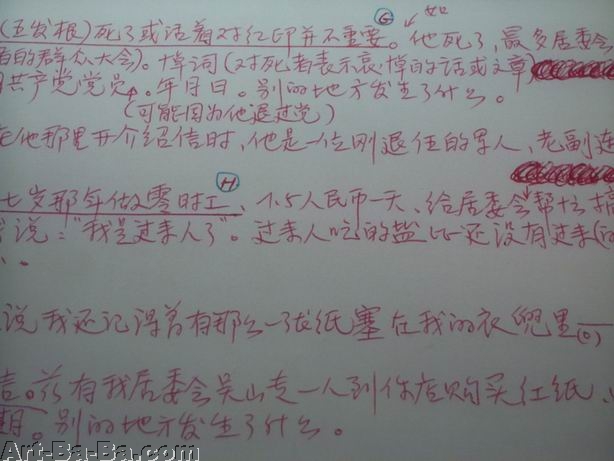 G
如
(五发根)死了或活着对红印并不重要。他死了,最多居委会
的群众大会)。悼词(对死者表示哀悼的话或文章)
共产党党员。年月日。别的地方发生了什么。
(可能因为他退过党)
在他那里开介绍信时,他是一位刚退伍的军人,老副连
H
七岁那年做零时工、1.5人民币一天、给居委会帮
说:“我是过来人了”。过来人吃的盐比还没有过来
说我还记得曾有那么一张纸塞在我的衣兜里
(0)
兹有我居委会吴山专一人到你店购买红纸、
期。别的地方发生了什么。
Art-Ba-Ba.com
Art-Ba-Ba.com